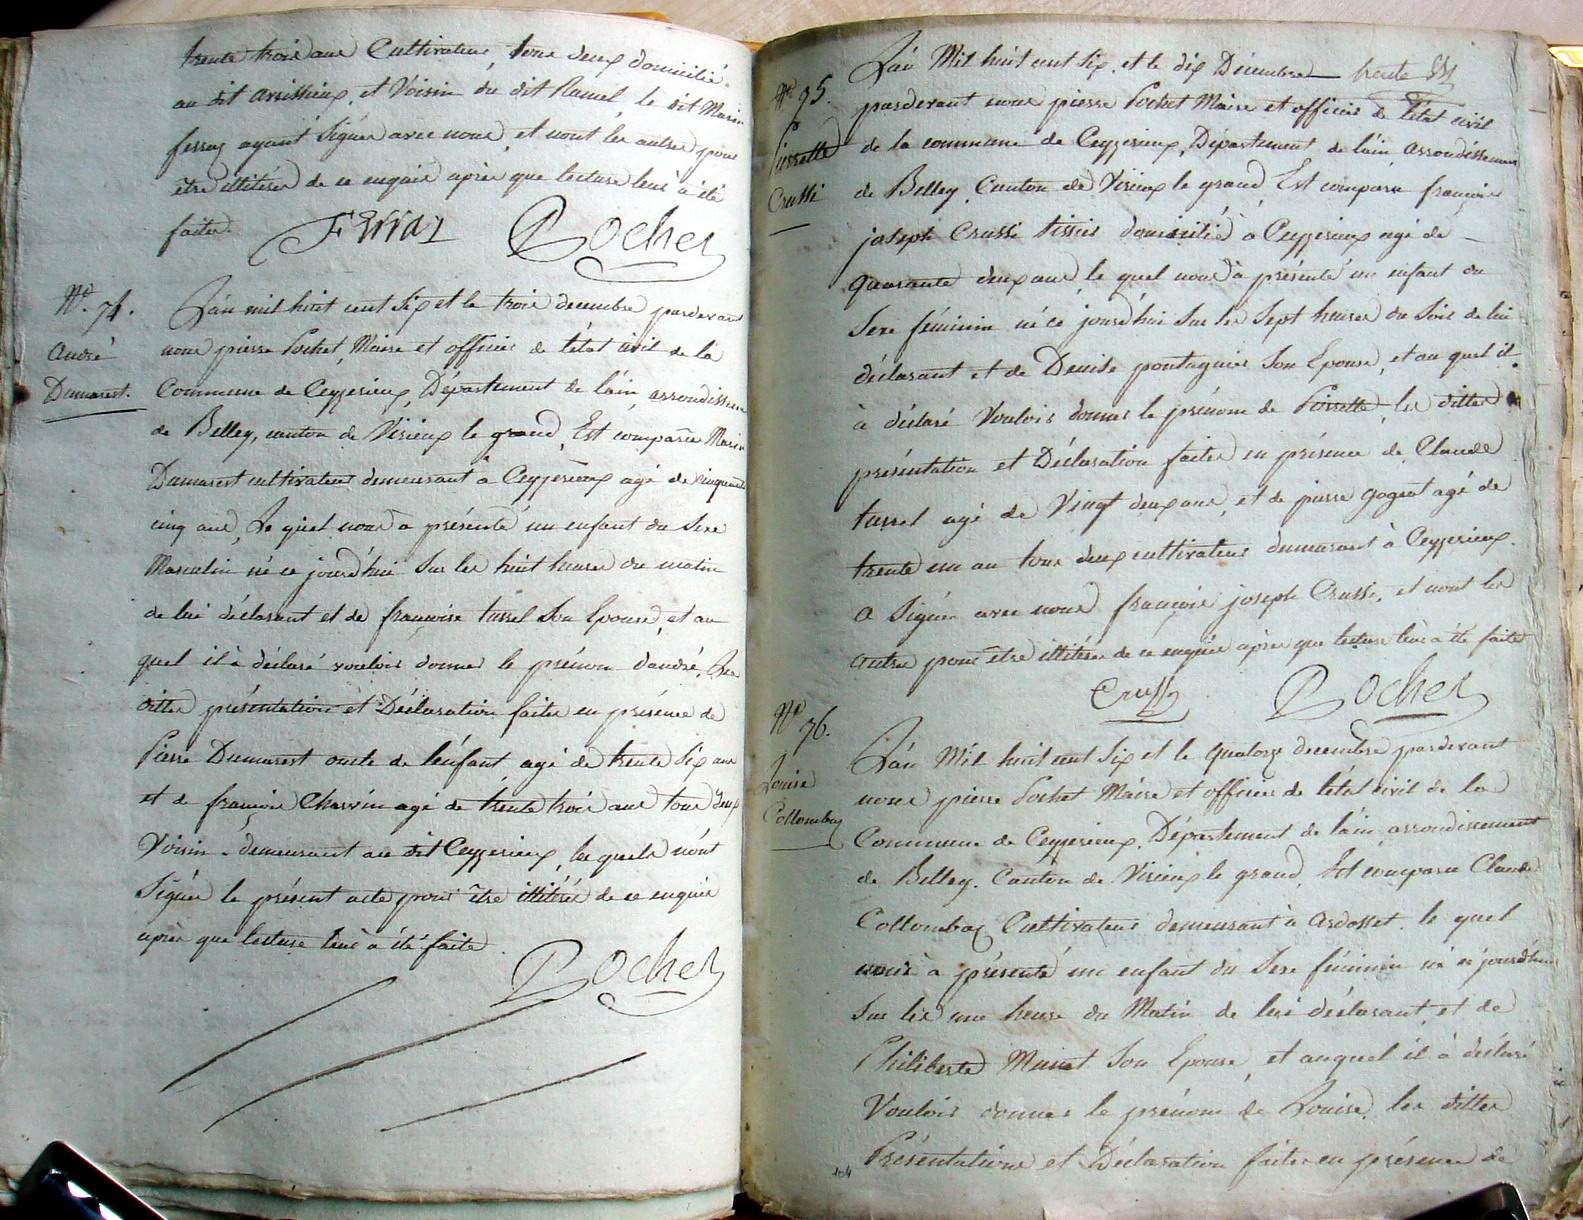 trente trois ans Cultivateurs, tous deux domicilié
au dit arcissieux, et Voisin du dit Ramel le dit Marin
ferraz ayant Signés avec nous, et nont les autres pour
être illitérés de ce enquis après que lecture leur à été
faites.
Ferraz Pochet
N.º 74.
André
Dumarest.
L'an mil huit cent Six et le trois decembre pardevant
nous pierre Pochet, Maire et officier de l'état civil de la
Commune de Ceyzerieux, Département de l'ain, arrondissement
de Belley, canton de Virieux le grand, Est comparu Marin
Dumarest cultivateur demeurant à Ceyzerieux agé de cinquante
cinq ans, Le quel nous a présenté un enfant du Sexe
Masculin né ce jourd'hui Sur les huit heures du matin
de lui déclarant et de françoise tussel Son Epouse, et au
quel il à déclaré vouloir donner le prénom d'andré, Les
dittes présentation et Déclaration faites en présence de
Pierre Dumarest oncle de l'enfant agé de trente Six ans
et de françois Charvin agé de trente trois ans tous deux
Voisin demeurant au dit Ceyzerieux, les quels n'ont
Signés le présent acte pour être illitérés de ce enquis
après que lecture leur à été faite.
Pochet
Nº 75.
Pierrette
Crussi
L'an Mil huit cent Six et le dix Décembre trente
pardevant nous pierre Pochet Maire et officier de l'état civil
de la commune de Ceyzerieux, Département de l'ain, arrondissement
de Belley, Canton de Virieux le grand, Est comparu françois
joseph Crussi tissier domicilié à Ceyzerieux agé de
quarante deux ans, le quel nous à présenté un enfant du
Sexe féminin né ce jourd'hui Sur les Sept heures du Soir de lui
déclarant et de Denise pontagnier Son Epouse, et au quel il
à déclaré Vouloir donner le prénom de Pierrette les dittes
présentation et Déclaration faites en présence de Claude
tussel agé de Vingt deux ans, et de pierre gogeat agé de
trente un an tous deux cultivateurs demeurant à Ceyzerieux.
a Signés avec nous françois joseph Crussi, et nont les
autres pour être illitérés de ce enquis après que lecture leur a été faites
Crussi Pochet
Nº 76.
Louise
Collombaz
L'an Mil huit cent Six et le quatorze decembre pardevant
nous pierre Pochet Maire et officier de l'état civil de la
Commune de Ceyzerieux, Département de l'ain, arrondissement
de Belley, Canton de Virieux le grand, Est comparu Claude
Collombaz Cultivateur demeurant à Ardosset, le quel
nous à présenté un enfant du Sexe féminin né ce jourd'hui
Sur les une heure du Matin de lui déclarant, et de
Philiberte Munet Son Epouse, et auquel il à déclaré
Vouloir donner le prénom de Louise, les dittes
Présentations et Déclaration faites en présence de